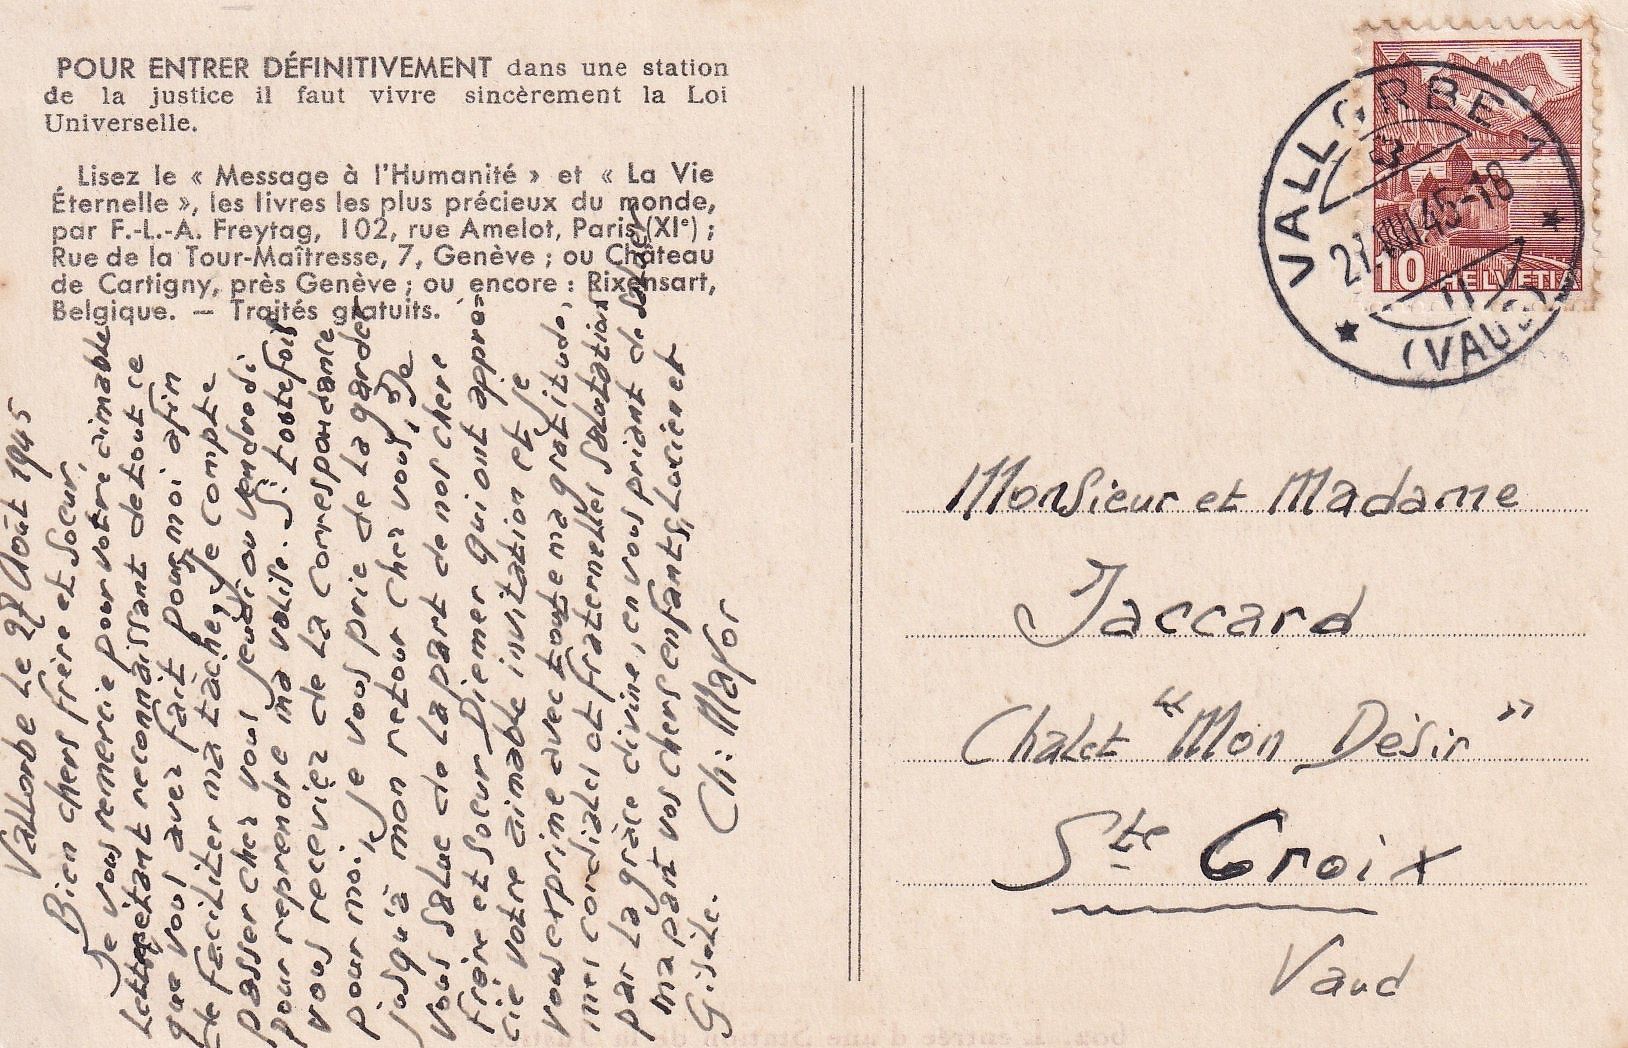 POUR ENTRER DÉFINITIVEMENT dans une station
de la justice il faut vivre sincèrement la Loi
Universelle.
Lisez le « Message à l'Humanité » et « La Vie
Éternelle », les livres les plus précieux du monde,
par F.-L.-A. Freytag, 102, rue Amelot, Paris (XIe) ;
Rue de la Tour-Maîtresse, 7, Genève ; ou Château
de Cartigny, près Genève ; ou encore : Rixensart,
Belgique. — Traités gratuits.
Vallorbe le 27 Août 1945
Bien chers frère et soeur,
Je vous remercie pour votre aimable
lettre, étant reconnaissant de tout ce
que vous avez fait pour moi afin
de faciliter ma tâche, Je compte
passer chez vous jeudi ou vendredi
pour reprendre ma valise. Si toutefois
vous receviez de la correspondance
pour moi, je vous prie de la garder
jusqu'à mon retour chez vous, Je
vous salue de la part de nos chers
frère et soeur Diemer qui ont appré-
cié votre aimable invitation et je
vous exprime avec toute ma gratitude,
mes cordiales et fraternelles salutations
par la grâce divine, en vous priant de saluer
ma part vos chers enfants, Lucien et
Gisèle.
Ch: Mayor
VALLORBE 1
3
27.VIII.45-18
(VAUD)
10 HELVETIA
Monsieur et Madame
Jaccard
Chalet "Mon Désir"
Ste Croix
Vaud